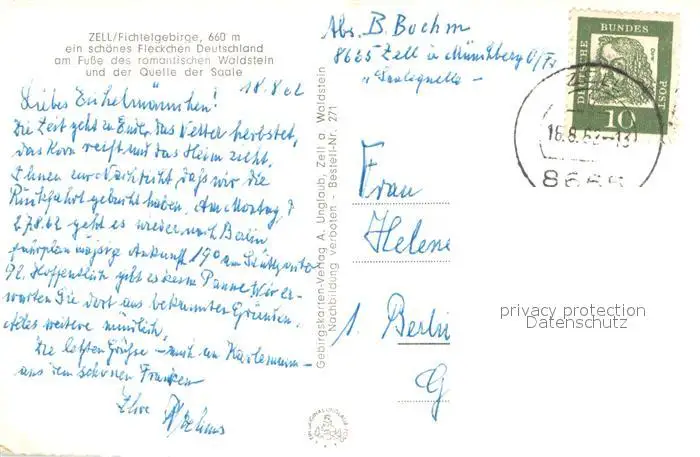 ZELL/Fichtelgebirge, 660 m
ein schönes Fleckchen Deutschland
am Fuße des romantischen Waldstein
und der Quelle der Saale
18.8.62
Liebes Einhelmännchen!
Die Zeit geht zu Ende, das Wetter herbstet,
das Korn reift und das Heim zieht.
Ihnen zur Nachricht, daß wir die
Rückfahrt gebucht haben. Am Montag,
27.8.62 geht es wieder nach Berlin,
fahrplanmäßige Ankunft 19° am
92. Hoffentlich gibt es keine Panne. Wir er-
warten Sie dort aus bekannten Gründen.
Alles weitere mündlich.
Die letzten Grüße – auch an
aus dem schönen Franken
Ihre
Gebirgskarten-Verlag A. Unglaub, Zell a. Waldstein
Nachbildung verboten - Bestell-Nr. 271
Abs. B. Boehm
8665 Zell ü. Münchberg O/Fr
"Saalequelle"
DEUTSCHE BUNDES POST
10
ZELL
16.8.62-13
8665
Frau
Helene
1. Berli
G
privacy protection
Datenschutz